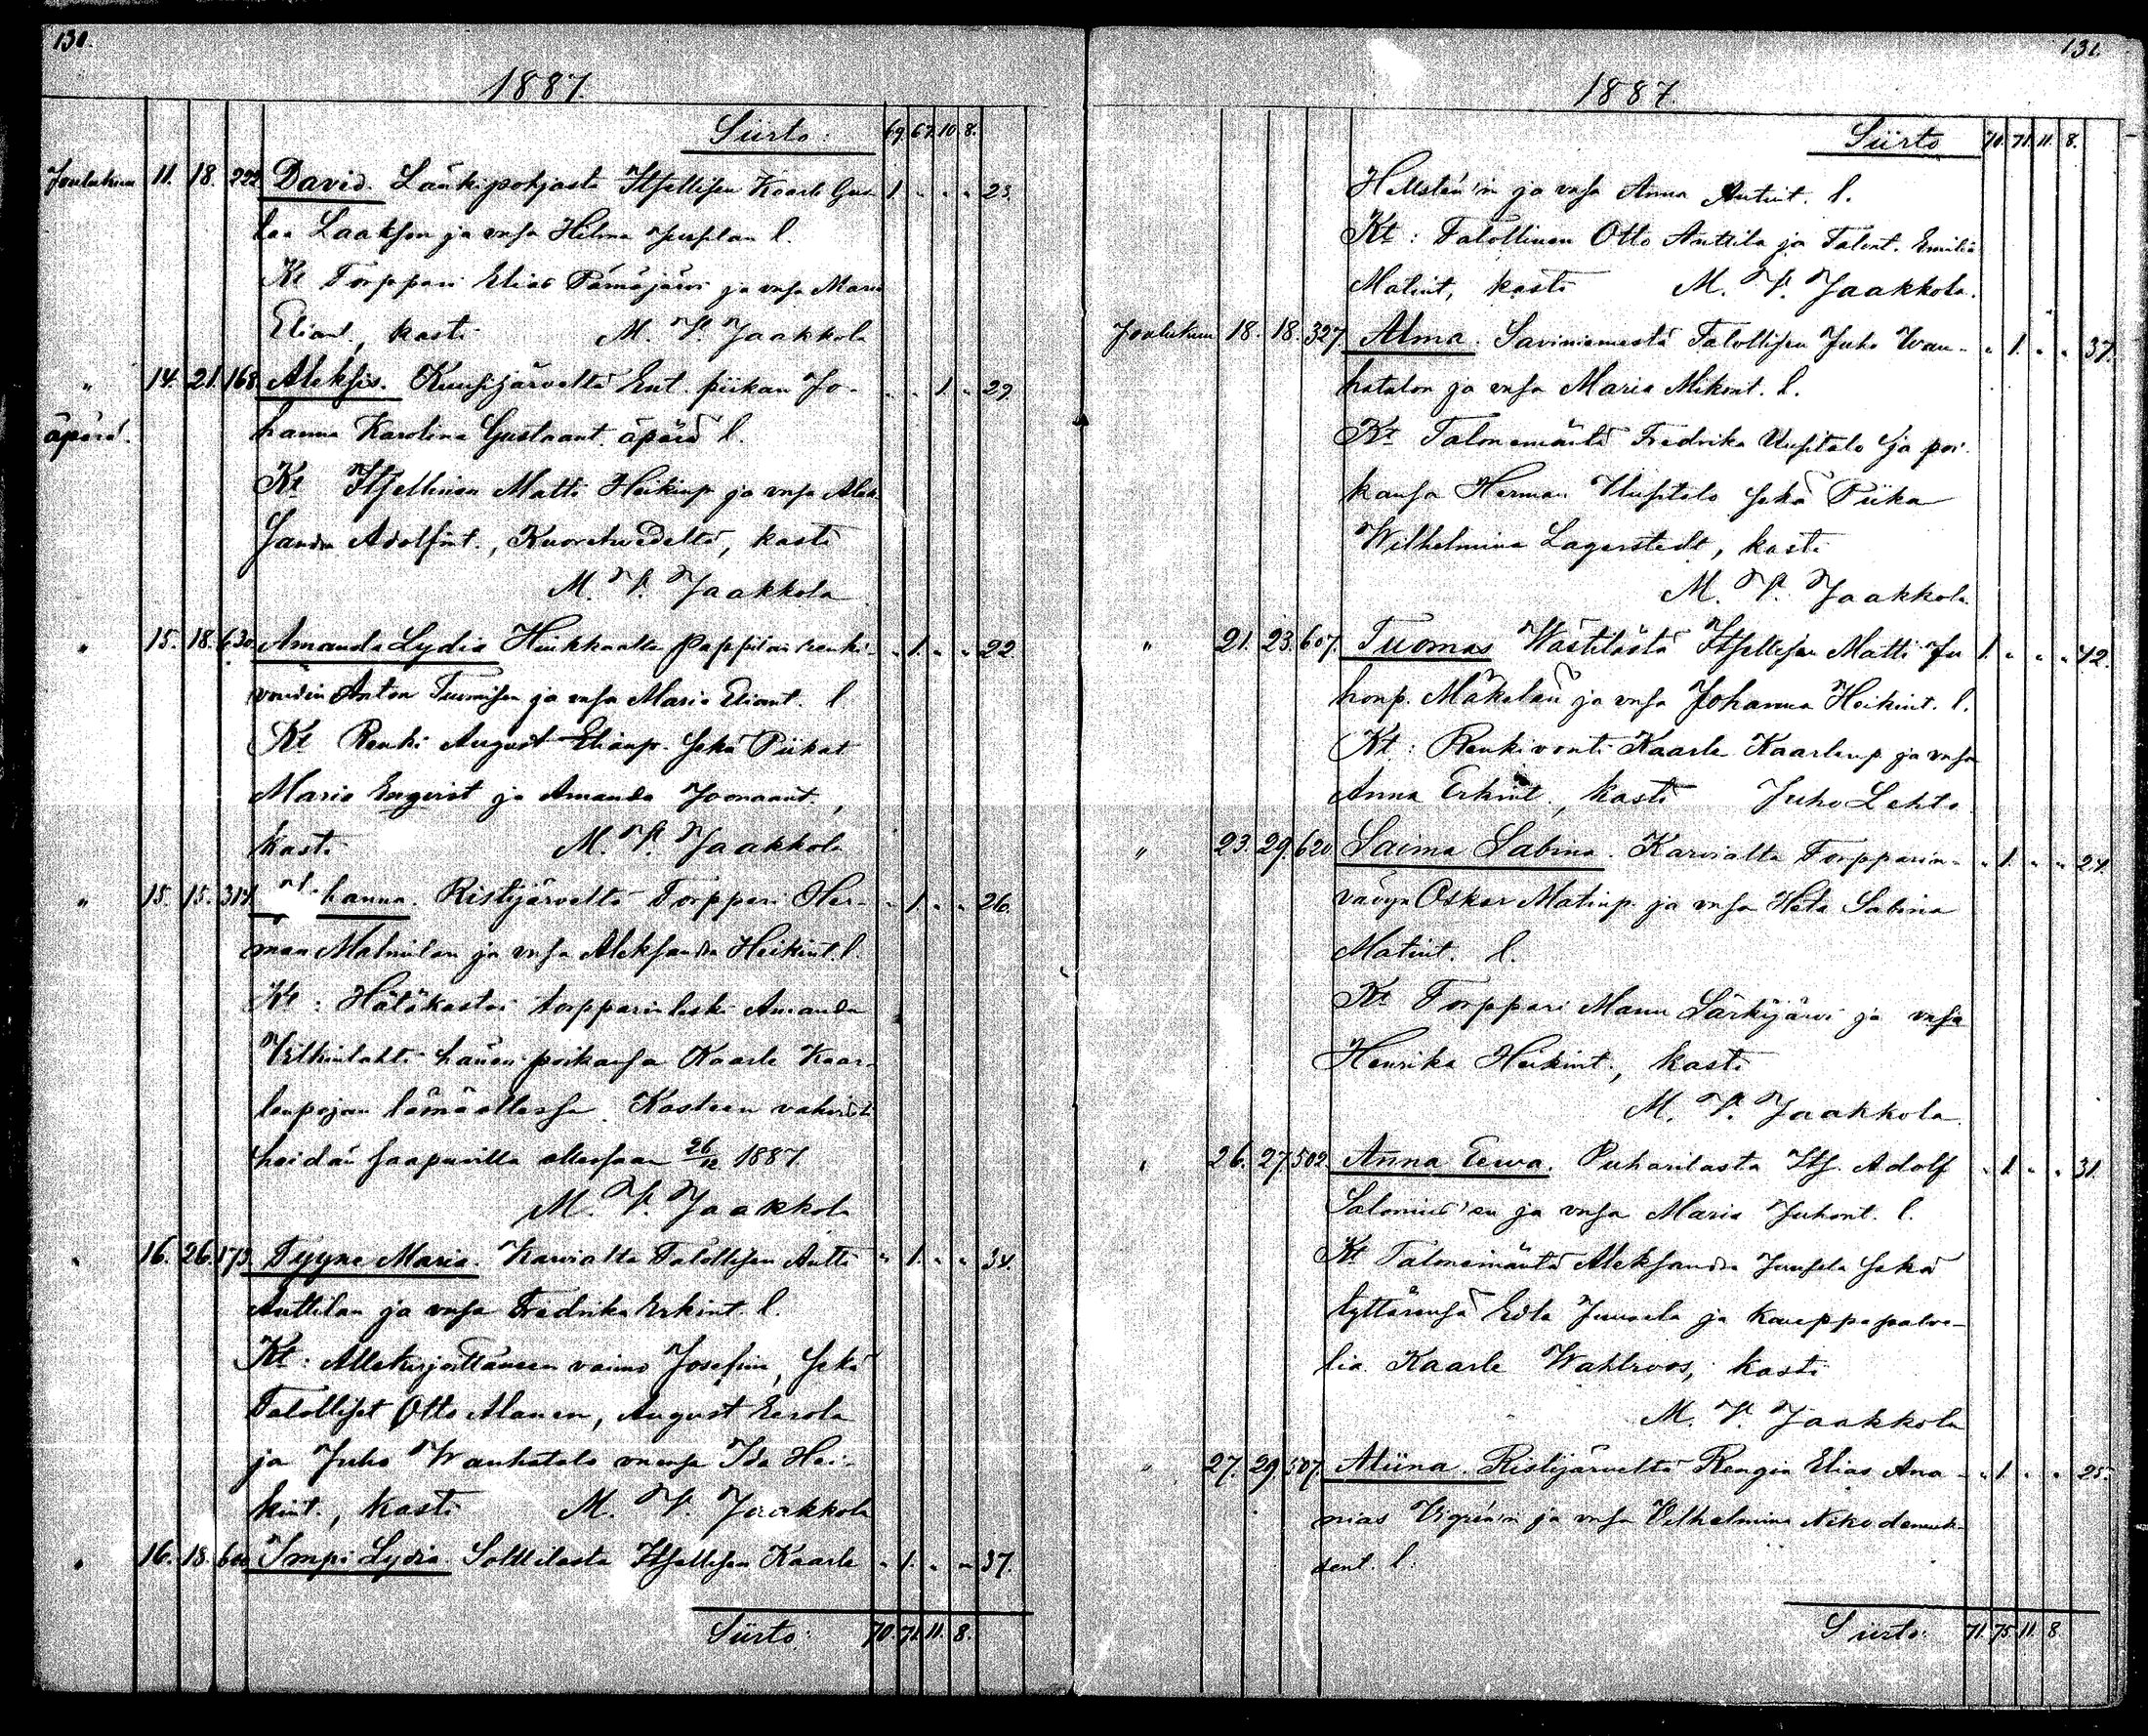 130.
1887.
Siirto: 69. 67. 10. 8.
Joulukuu 11. 18. 222 David. Länkipohjasta Itsellisen Kaarle Gus- 1. " " " 23.
taa Laakson ja vmsa Helma Jussilan l.
Kt Torppari Elias Pämäjärvi ja vmsa Maria
Eliant., kasti M. V. Jaakkola
" 14. 21. 168. Aleksis. Kuusijärveltä Ent. piikan Jo- " " 1. " 29.
äpärä. hanna Karolina Gustaant. äpärä l.
Kt Itsellinen Matti Heikinp. ja vmsa Alek-
sandra Adolfint., Kuorehwedeltä, kasti
M. V. Jaakkola
" 15. 18. 630. Amanda Lydia Hinkkaalta Pappilan renki- " 1. " " 22.
voudin Anton Tuomisen ja vmsa Maria Eliant. l
Kt Renki August Elianp. sekä Piikat
Maria Engerist ja Amanda Joonaant.,
kasti M. V. Jaakkola
" 15. 15. 314. hanna. Ristijärveltä Torppari Her- " 1. " " 26.
man Malmilan ja vmsa Aleksandra Heikint. l.
Kt: Hätäkastoi torpparinleski Amanda
Vilkinlahti hänen poikansa Kaarle Kaar-
lenpojan läsnäollessa. Kasteen vahvisti
heidän saapuvilla ollessaan 26/12 1887.
M. V. Jaakkola
" 16. 26. 173. Tyyne Maria. Karvialta Talollisen Antti " 1. " " 34.
Anttilan ja vmsa Fredrika Erkint. l.
Kt: Allekirjoittaneen vaimo Josefina, sekä
Talolliset Otto Alanen, August Eerola
ja Juho Wanhatalo vmsa Ida Hei-
kint., kasti M. V. Jaakkola
" 16. 18. 600 Impi Lydia. Solttilasta Itsellisen Kaarle " 1. " " 37.
Siirto: 70. 71. 11. 8.
131.
1887.
Siirto 70. 71. 11. 8.
Hellstén'in ja vmsa Anna Antint. l.
Kt: Talollinen Otto Anttila ja Talont. Emilia
Matint, kasti M. V. Jaakkola.
Joulukuu 18. 18. 327. Alma. Saviniemestä Talollisen Juho Wan- " 1. " " 37.
hatalon ja vmsa Maria Mikont. l.
Kt Talonemäntä Fredrika Uusitalo ja poi-
kansa Herman Uusitalo sekä Piika
Wilhelmina Lagerstedt, kasti
M. V. Jaakkola.
" 21. 23. 607. Tuomas Wästilästä Itsellisen Matti Ju 1. " " " 42.
honp. Mäkelän ja vmsa Johanna Heikint. l.
Kt: Renkivouti Kaarle Kaarlenp. ja vmsa
Anna Erkint., kasti Juho Lehto
" 23. 29. 620 Saima Sabina. Karvialta Torpparin- " 1. " " 24.
vävyn Oskar Matinp. ja vmsa Heta Sabina
Matint. l.
Kt Torppari Manu Särkijärvi ja vmsa
Henrika Heikint., kasti
M. V. Jaakkola
" 26. 27. 502. Anna Eewa. Puharilasta Its. Adolf " 1. " " 31.
Salonius'en ja vmsa Maria Juhont. l.
Kt Talonemäntä Aleksandra Juusela sekä
tyttärensä Edla Juusela ja kauppapalve-
lia Kaarle Wahlroos, kasti
M. V. Jaakkola
" 27. 29. 507. Aliina. Ristijärveltä Rengin Elias Ana- " 1. " " 25.
nias Vigrén'in ja vmsa Vilhelmina Nikodemuk-
sent. l.
Siirto: 71. 75 11. 8.